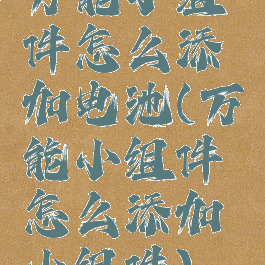 万能小组
件怎么添
加电池(万
能小组件
怎么添加
小组件)